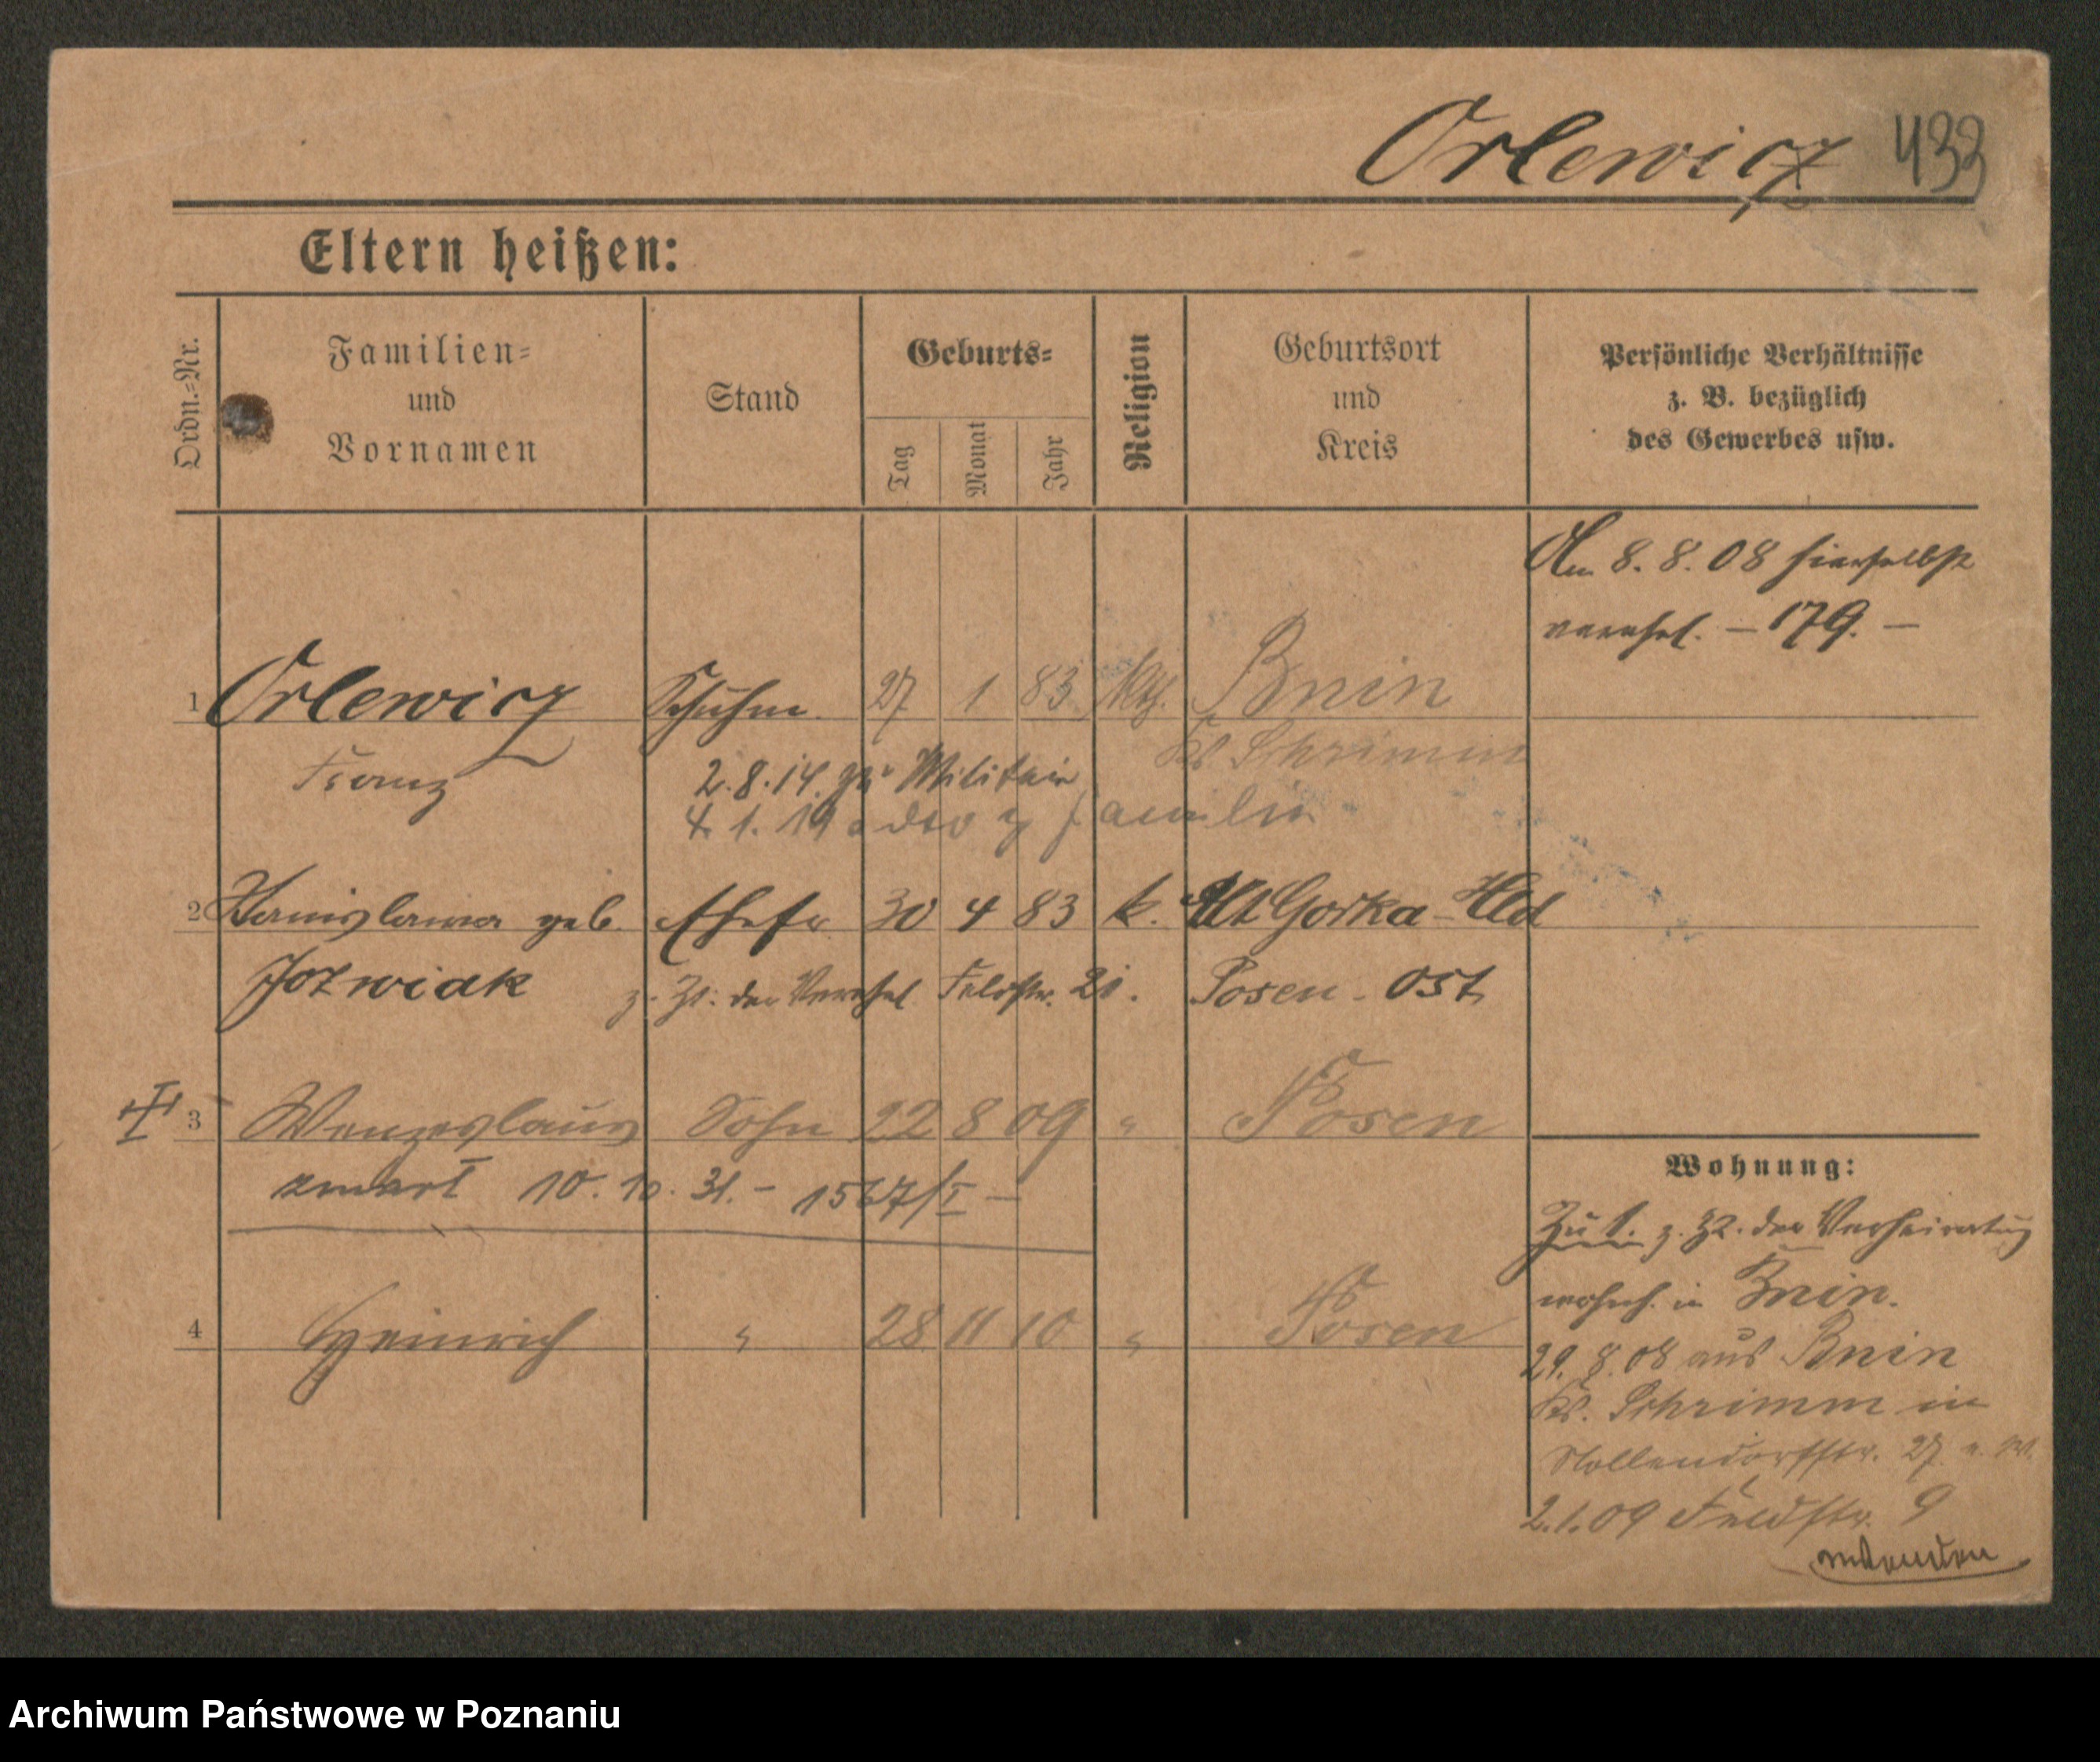 Orlewicz 433
Eltern heißen:
Ordn.=Nr.
Familien=
und
Vornamen
Stand
Geburts=
Tag
Monat
Jahr
Religion
Geburtsort
und
Kreis
Persönliche Verhältnisse
z. B. bezüglich
des Gewerbes usw.
Am 8. 8. 08 hierselbst
verehel. – 179. –
1 Orlewicz Schuhm. 27 1 83 kth. Bnin
Franz Krs Schrimm
2. 8. 14. zu Militair
4. 1. 19 familie
2 Stanislawa geb. Ehefr. 30 4 83 k. Alt Gorka-Hld
Jozwiak z. Zt. der Verehel. Feldstr. 21. Posen-Ost
3 Wenzeslaus Sohn 22 8 09 " Posen
zmarł 10. 10. 31. – 1567/I –
4 Heinrich " 28 11 10 " Posen
Wohnung:
Zu 1. z. Zt. der Verheiratung
wohnh. in Bnin.
29. 8. 08 aus Bnin
Krs. Schrimm in
Nollendorfstr. 27
2. 1. 09 Feldstr. 9
wenden
Archiwum Państwowe w Poznaniu